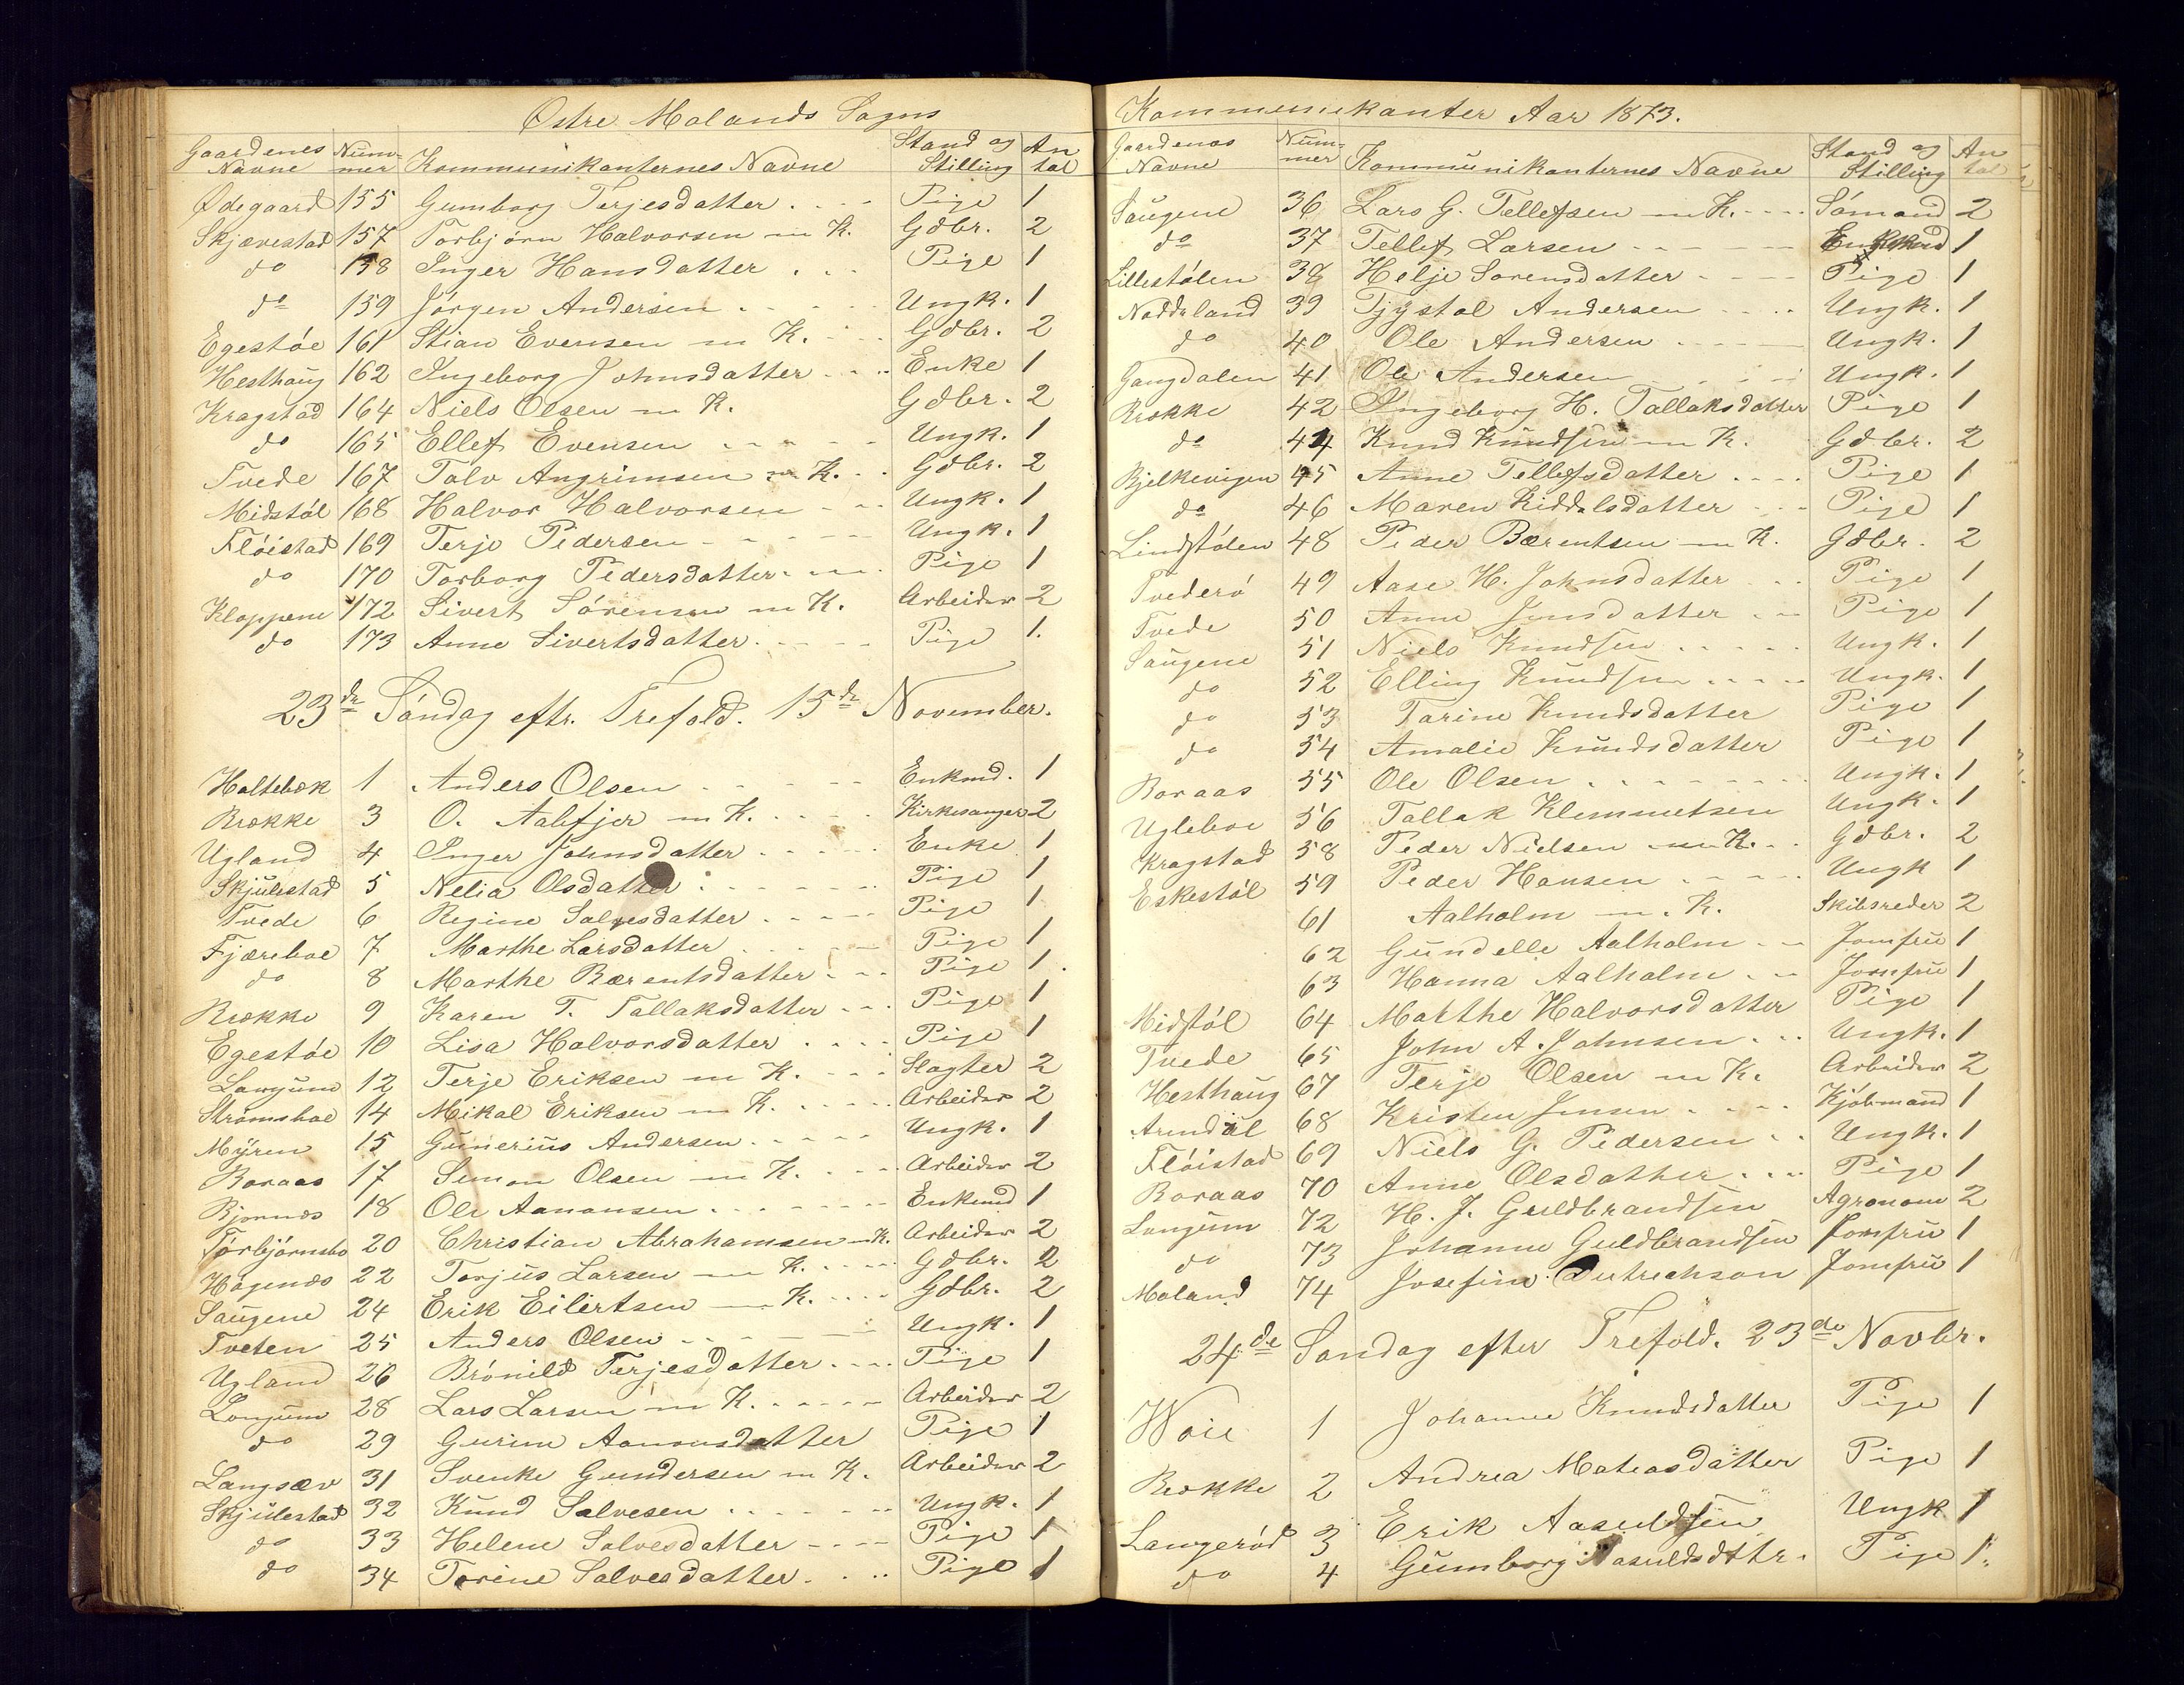 Østre Molands Sogns
Gaardenes Navne Num-mer Kommunikanternes Navne Stand og Stilling An tal
Ødegaard 155 Gumborg Terjesdatter Pige 1
Skjævestad 157 Torbjörn Halvorsen m K. Gdbr. 2
do 158 Inger Hansdatter Pige 1
do 159 Jörgen Andersen Ungk. 1
Egestöe 161 Stian Evensen m K. Gdbr. 2
Hesthaug 162 Ingeborg Johnsdatter Enke 1
Kragstad 164 Niels Olsen m K. Gdbr. 2
do 165 Ellef Evensen Ungk. 1
Tvede 167 Talv Angrimsen m K. Gdbr. 2
Midstöl 168 Halvor Halvorsen Ungk. 1
Flöistad 169 Terje Pedersen Ungk. 1
do 170 Torborg Pedersdatter Pige 1
Kloppene 172 Sivert Sörensen m K. Arbeider 2
do 173 Anne Sivertsdatter Pige 1.
23de Söndag eftr. Trefold. 15de November.
Holtebæk 1 Anders Olsen Enkmd. 1
Brække 3 O. Aalefjer m K. Kirkesanger 2
Ugland 4 Inger Johnsdatter Enke 1
Skjulestad 5 Nelia Olsdatter Pige 1
Tvede 6 Regine Salvesdatter Pige 1
Fjæreboe 7 Marthe Larsdatter Pige 1
do 8 Marthe Bærentsdatter Pige 1.
Brække 9 Karen T. Tallaksdatter Pige 1
Egestöe 10 Lisa Halvorsdatter Pige 1
Langum 12 Terje Eriksen m K. Slagter 2
Strømsboe 14 Mikal Eriksen m K. Arbeider 2
Myren 15 Gunerius Andersen Ungk. 1
Boraas 17 Simon Olsen m K. Arbeider 2
Bjørnnes 18 Ole Aanonsen Enkemd 1
Torbjörnsbo 20 Christian Abrahamsen m K. Arbeider 2
Högenæs 22 Torjus Larsen m K. Gdbr. 2
Saugene 24 Erik Eilertsen m K. Gdbr. 2
Tveten 25 Anders Olsen Ungk. 1
Ugland 26 Brönild Terjesdatter Pige 1
Longum 28 Lars Larsen m K. Arbeider 2
do 29 Gurine Aanonsdatter Pige 1
Langsæv 31 Svenke Gundersen m K. Arbeider 2
Skjulestad 32 Knud Salvesen Ungk. 1
do 33 Helene Salvesdatter Pige 1
do 34 Torine Salvesdatter Pige 1
Kommunikanter Aar 1873.
Gaardenes Navne Num-mer Kommunikanternes Navne Stand og Stilling An tal
Saugene 36 Lars G. Tellefsen m K. Sömand 2
do 37 Tellef Larsen 1
Lillestölen 38 Helje Sorensdatter Pige 1
Noddeland 39 Tjystol Andersen Ungk. 1
do 40 Ole Andersen Ungk. 1
Gangdalen 41 Ole Andersen Ungk. 1
Brække 42 Ingeborg H. Tallaksdatter Pige 1
do 44 Knud Knudsen m K. Gdbr. 2
Bjelkevigen 45 Anne Tellefsdatter Pige 1
do 46 Maren Kiddelsdatter Pige 1
Lindstölen 48 Peder Bærentsen m K. Gdbr. 2
Tvederö 49 Aase H. Johnsdatter Pige 1
Tvede 50 Anne Jensdatter Pige 1
Saugene 51 Niels Knudsen Ungk. 1
do 52 Elling Knudsen Ungk. 1
do 53 Tarine Knudsdatter Pige 1
do 54 Amalie Knudsdatter Pige 1
Boraas 55 Ole Olsen Ungk. 1
Ugleboe 56 Tallak Klemmetsen Ungk. 1
Kragstad 58 Peder Nielsen m K. Gdbr. 2
Eskestöl 59 Peder Hansen Ungk 1
61 Aalholm m. K. Skibsreder 2
62 Gundelle Aalholm Jomfru 1
63 Hanna Aalholm Jomfru 1
Midstöl 64 Marthe Halvorsdatter Pige 1
Tvede 65 John A. Johnsen Ungk. 1
Hesthaug 67 Terje Olsen m K. Arbeider 2
Arendal 68 Kristen Jensen Kjöbmand 1
Flöistad 69 Niels G. Pedersen Ungk. 1
Boraas 70 Anne Olsdatter Pige 1
Longum 72 H. J. Guldbrandsen Agronom 2
do 73 Johanne Guldbrandsen Jomfru 1
Moland 74 Josefine Dietrichson Jomfru 1
24de Sondag efter Trefold. 23de Novbr.
Woie 1 Johanne Knudsdatter Pige 1
Brække 2 Andrea Mateasdatter Pige 1
Langeröd 3 Erik Aasuldsen Ungk 1
do 4 Gumborg Aasuldsdttr. Pige 1.